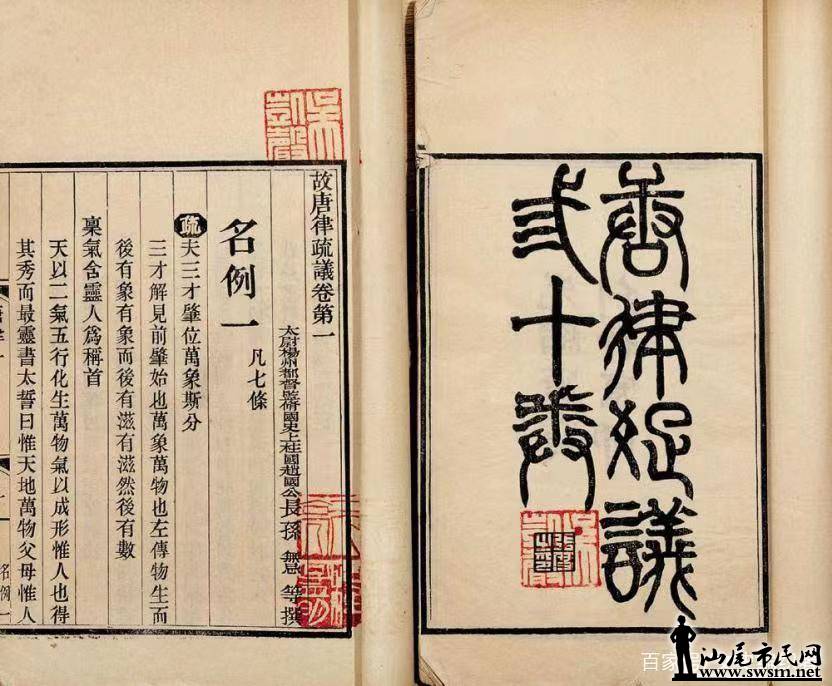 唐律疏議
弎十卷
吳凱聲
故唐律疏議卷第一
太尉楊州都督監脩國史上柱國趙國公長孫無忌等撰
名例一 凡七條
疏夫三才肇位萬象斯分
三才解見前肇始也萬象萬物也左傳物生而
後有象有象而後有滋有滋然後有數
稟氣含靈人爲稱首
天以二氣五行化生萬物氣以成形惟人也得
其秀而最靈書太誓曰惟天地萬物父母惟人
名例一
百家
汕尾市民网
www.swsm.net